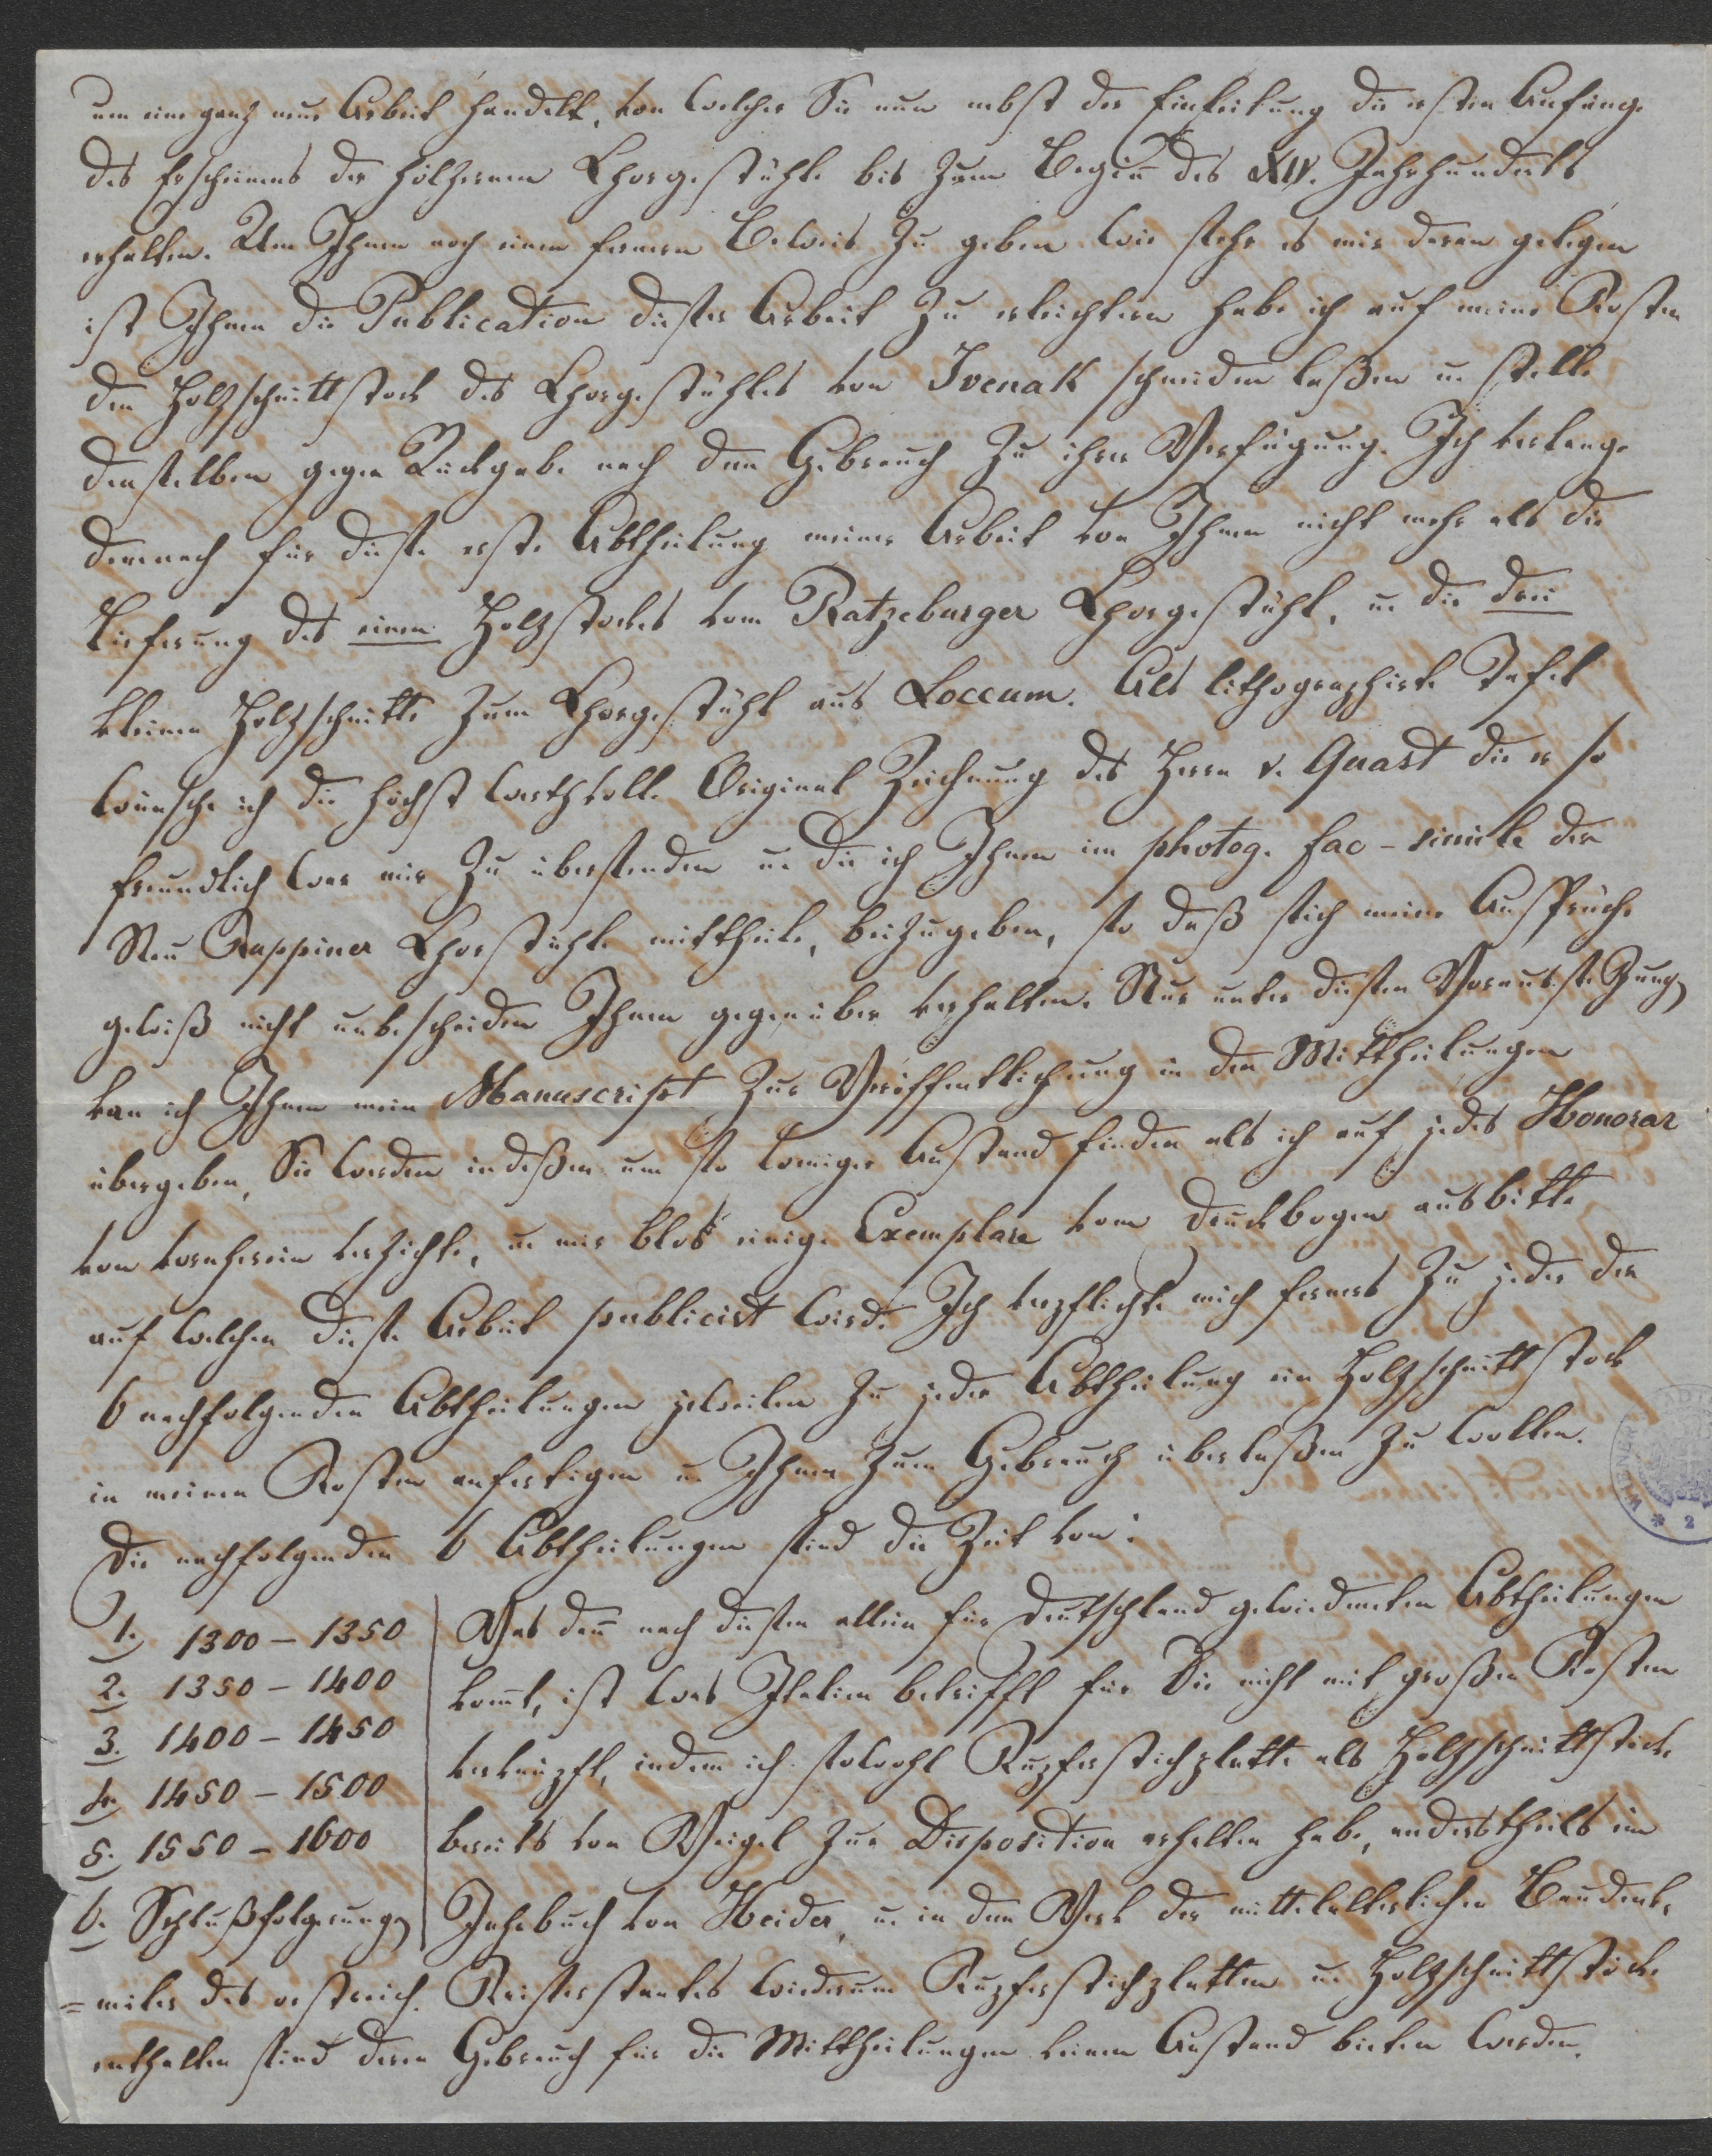 um eine ganz neue Arbeit handelt, von welcher Sie nun nebst der Einleitung die ersten Anfänge
des Erscheinens der hölzernen Chorgestühle bis zum Begin̄ des XIV. Jahrhunderts
erhalten. Um Ihnen noch einen fernern Beweis zu geben wie sehr es mir daran gelegen
ist Ihnen die Publication dieser Arbeit zu erleichtern habe ich auf meine Kosten
den Holzschnittstock des Chorgestühles von Ivenak schneiden laßen u. stelle
denselben gegen Rückgabe nach dem Gebrauch zu ihrer Verfügung. Ich verlange
demnach für diese erste Abtheilung meiner Arbeit von Ihnen nicht mehr als die
Lieferung des einen Holzstockes vom Ratzeburger Chorgestühl, u. die drei
kleinen Holzschnitte zum Chorgestühl aus Loccum. Als lithographirte Tafel
wünsche ich die höchst werthvolle Original Zeichnung des Herrn v. Quast die er so
freundlich war mir zu übersenden u. die ich Ihnen im photog. fac-simile der
Neu Ruppiner Chorstühle mittheile, beizugeben, so daß sich meine Ansprüche
gewiß nicht unbescheiden Ihnen gegenüber verhalten. Nur unter diesen Voraussetzung
kan ich Ihnen mein Manuscript zur Veröffentlichung in den Mittheilungen
übergeben, Sie werden indeßen um so weniger Anstand finden als ich auf jedes Honorar
von vornherein verzichte, u. mir blos einige Exemplare vom Druckbogen ausbitte
auf welchen diese Arbeit publicirt wird. Ich verpflichte mich ferners zu jeder der
6 nachfolgenden Abtheilungen jeweilen zu jeder Abtheilung ein Holzschnittstock
in meinen Kosten anfertigen u. Ihnen zum Gebrauch überlaßen zu wollen.
Die nachfolgenden 6 Abtheilungen sind die Zeit von:
1. 1300 – 1350
2. 1350 – 1400
3. 1400 – 1450
4. 1450 – 1500
5. 1550 – 1600
6. Schlußfolgerung
Was dan̄ nach diesen allein für Deutschland gewidmeten Abtheilungen
kom̄t, ist was Italien betrifft für Sie nicht mit großen Kosten
verknüpft, indem ich sowohl Kupferstichplatte als Holzschnittstöcke
bereits von Weigel zur Disposition erhalten habe, anderstheils im
Jahrbuch von Heider, u. in dem Werk der mittelalterlichen Baudenk-
=mäler des oestreich. Kaiserstaates wiederum Kupferstichplatten u. Holzschnittstöcke
enthalten sind deren Gebrauch für die Mittheilungen keinen Anstand bieten werden.
WIENER
2